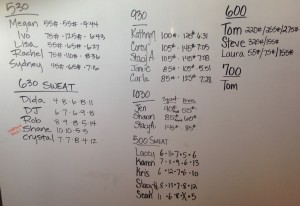 530
Megan 55# 55# 9:44
Ivo 75# 125# 6:43
Lisa 55# 65# 6:27
Rachel 55# 75# 8:36
Sydney 45# 65# 7:16
630 SWEAT
Dida 4 8 6 8 11
DJ 6 7 6 9 8
Rob 8 9 8 5 14
Shane 10 10 5 5
Crystal 7 7 8 4 12
930
Kathryn 100# 125# 6:31
Corey 105# 145# 7:05
Staci A 105# 145# 7:08
Janice 85# 105# 5:51
Carla 85# 125# 7:21
1030
Jen
Shauri 85# 60#
Stacy H 85#
500 SWEAT
Lacey 6 11 7 5 6
Karen 7 11 9 6 13
Kris 6 12 7 6 10
Stacy 8 13 7 8 12
Sean 11 6 8 X 5
600
Tom 220# / 255# / 275#
Steve 320# / 155#
Laura 75# / 155#
700
Tom